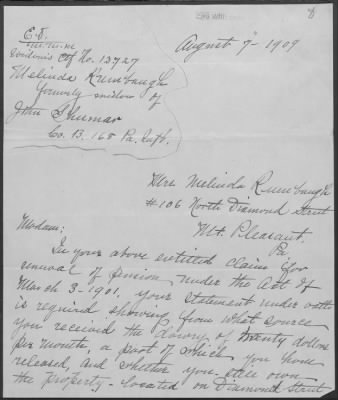 8
E.D.
M.M.M.
Widow's Ctf No. 12727
Melinda Rumbaugh
formerly widow of
John Shumar
Co. B, 168 Pa. Inf.
August 7- 1909
Mrs Melinda Rumbaugh
#106 North Diamond Street
Mt. Pleasant.
Pa
Madam:
In your above entitled claim for
renewal of pension under the Act of
March 3-1901, your statement under oath
is required showing from what source
you received the dowry of twenty dollars
per month, a part of which you have
released, and whether you still own
the property- located on Diamond Street